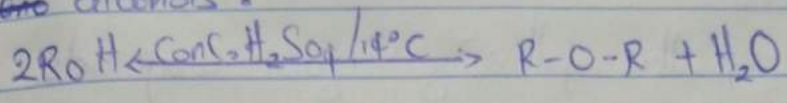 2ROH <-Conc. H₂SO₄/14°C-> R-O-R + H₂O